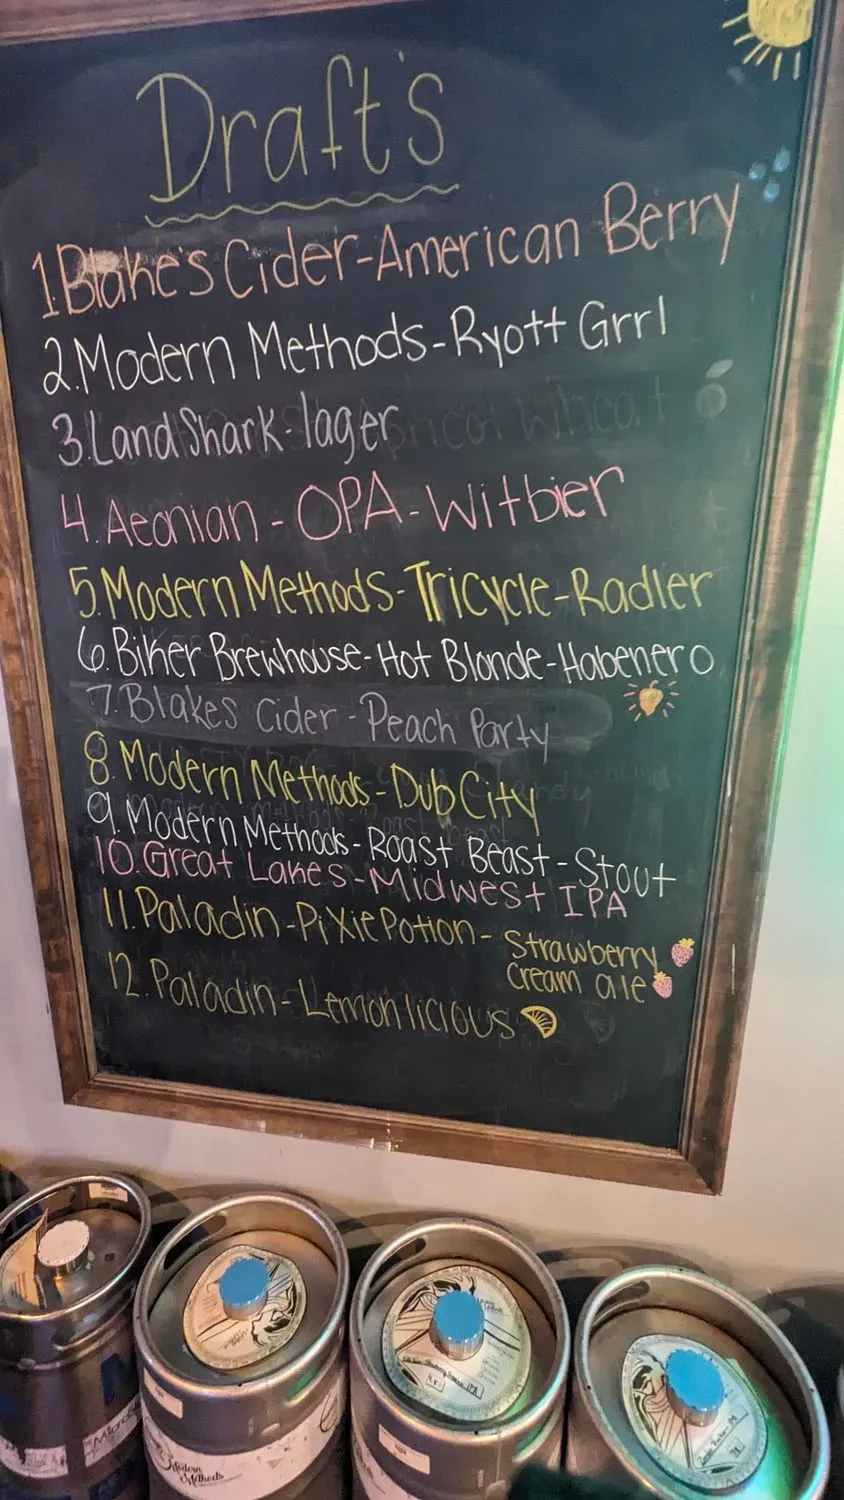 Draft's
1. Blake's Cider-American Berry
2. Modern Methods-Ryott Grrl
3. LandShark-lager
4. Aeonian - OPA - Witbier
5. Modern Methods-Tricycle-Radler
6. Biker Brewhouse-Hot Blonde-Habenero
7. Blakes Cider - Peach Party
8. Modern Methods-Dub City
9. Modern Methods-Roast Beast-Stout
10. Great Lakes-Midwest IPA
11. Paladin-Pixie Potion- Strawberry
Cream ale
12. Paladin-Lemonlicious
Modern
Methods